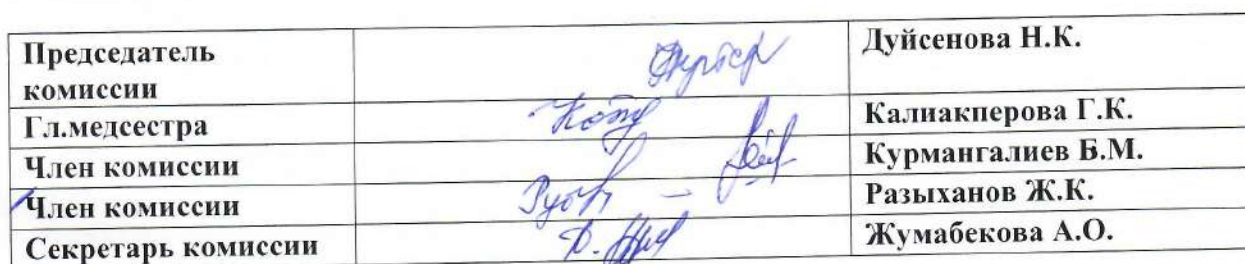 Председатель Дуйсенова Н.К.
комиссии
Гл.медсестра Калиакперова Г.К.
Член комиссии Курмангалиев Б.М.
Член комиссии Разыханов Ж.К.
Секретарь комиссии Жумабекова А.О.